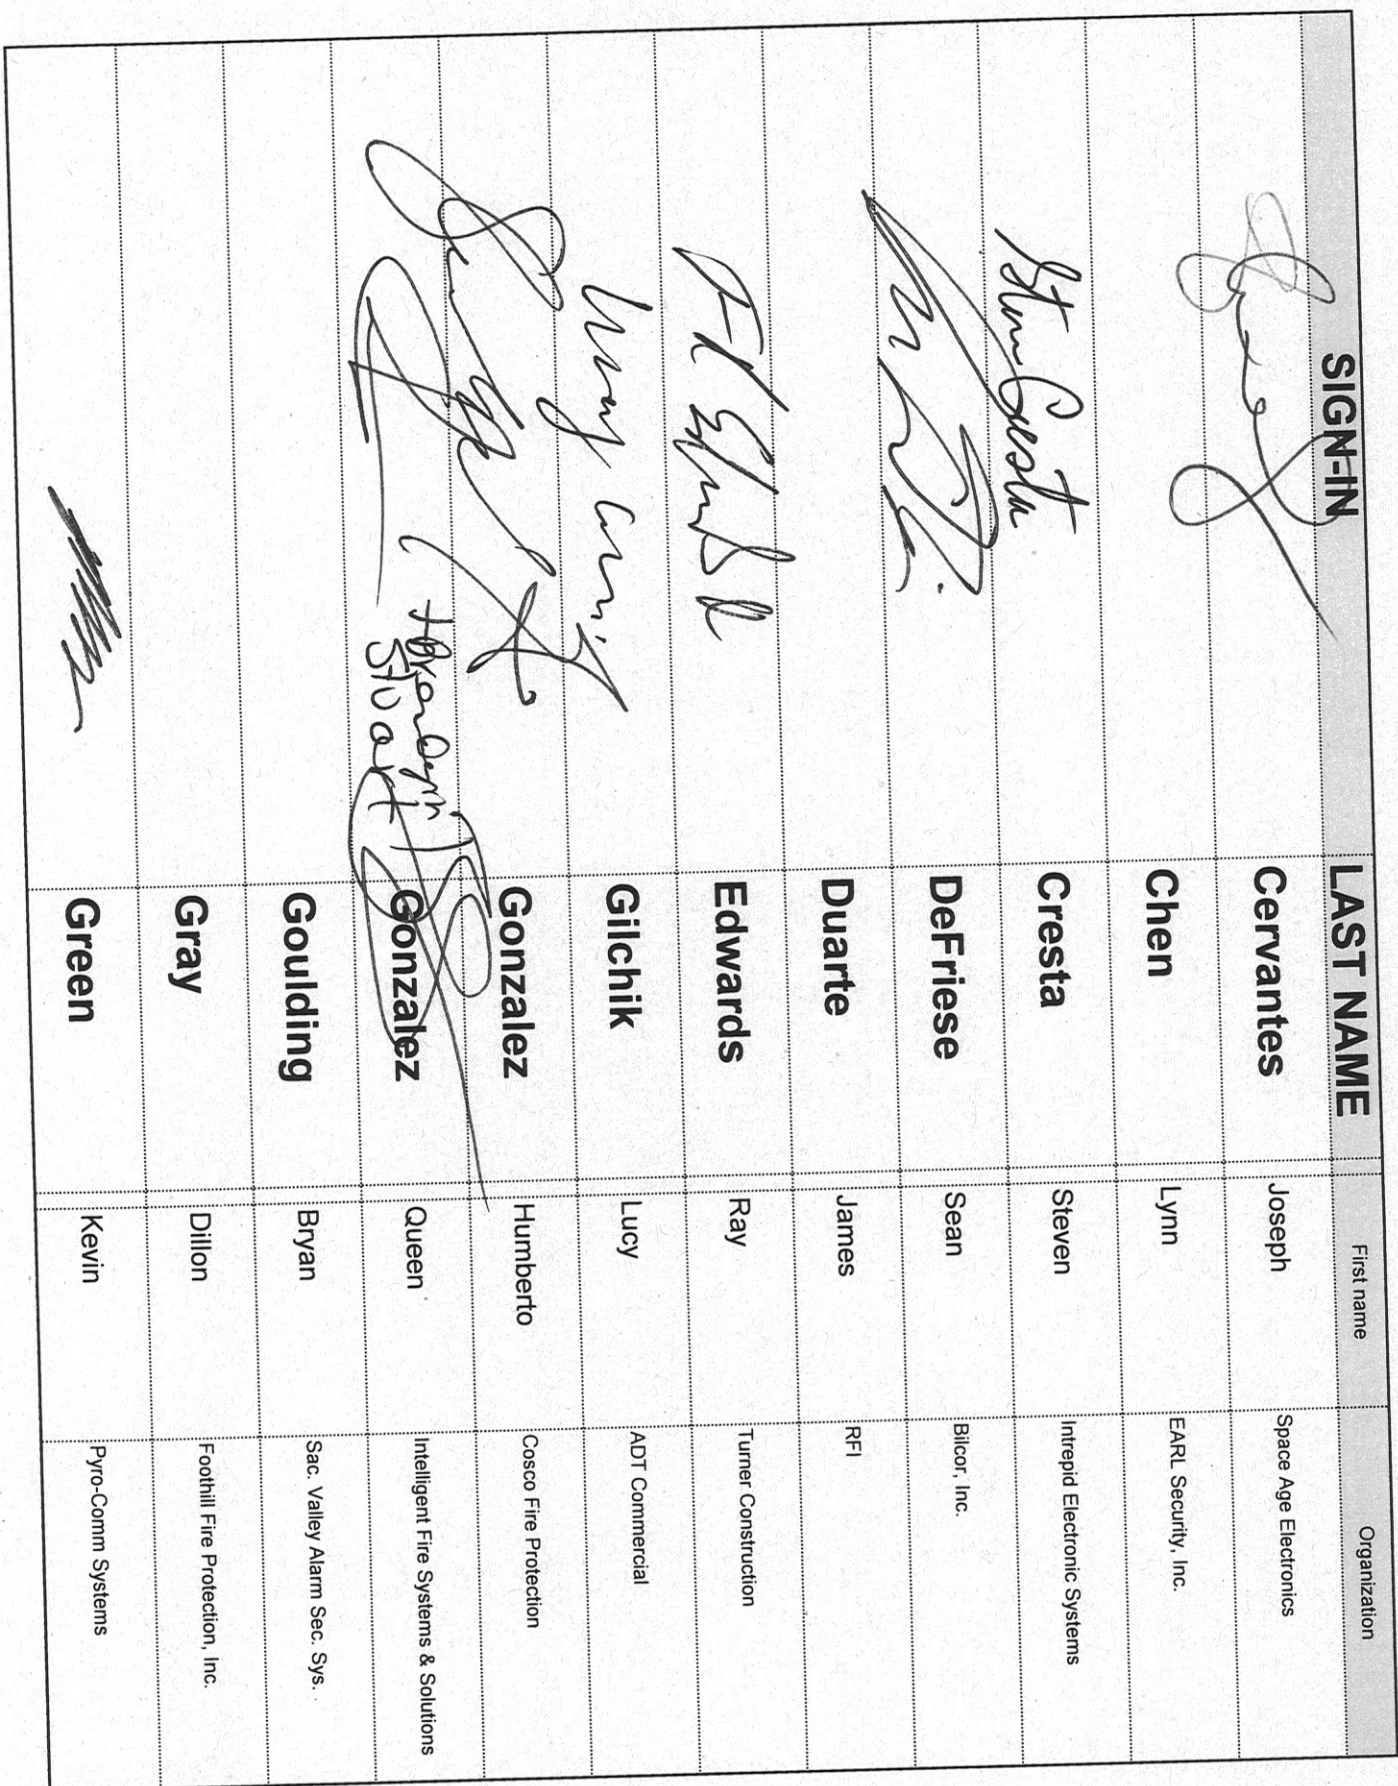 SIGN-IN LAST NAME First name Organization
Cervantes Joseph Space Age Electronics
Chen Lynn EARL Security, Inc.
Steven Cresta Cresta Steven Intrepid Electronic Systems
DeFriese Sean Bilcor, Inc.
Duarte James RFI
Edwards Ray Turner Construction
Gilchik Lucy ADT Commercial
Gonzalez Humberto Cosco Fire Protection
Stuart Gonzalez Queen Intelligent Fire Systems & Solutions
Goulding Bryan Sac. Valley Alarm Sec. Sys.
Gray Dillon Foothill Fire Protection, Inc.
Green Kevin Pyro-Comm Systems